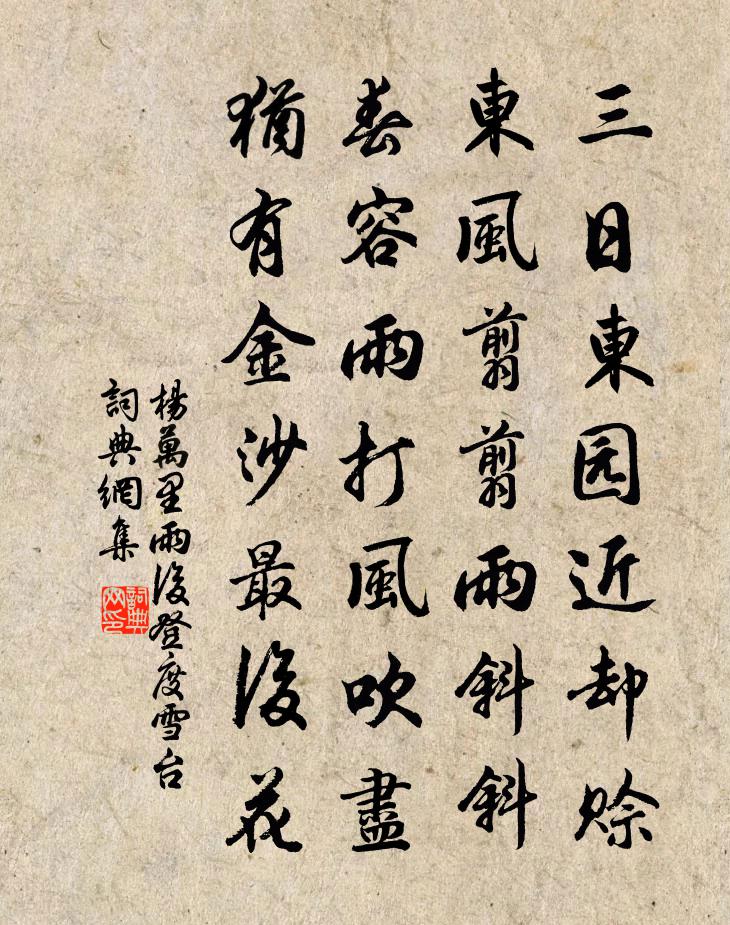 三日東园近却赊
東風翦翦雨斜斜
春容雨打風吹盡
猶有金沙最後花
楊萬里雨後登度雪台
詞典網集
詞典网印